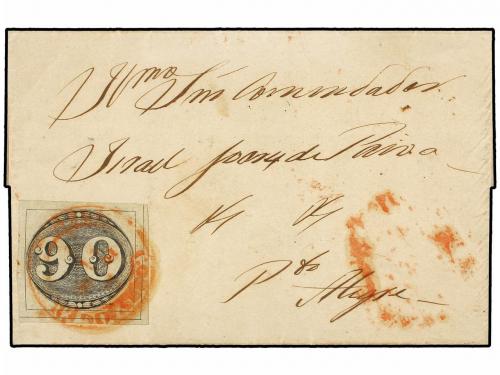 Illmo Snr Comendador
Israel Soares de Paiva
90
Pto Alegre